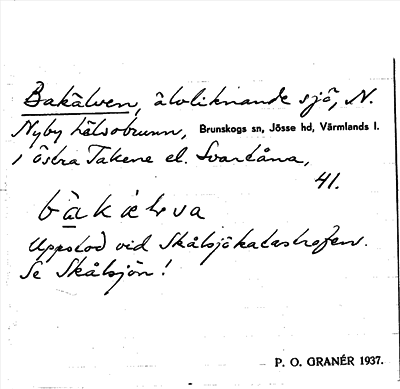 Bakälven, älvliknande sjö, N.
Nyby hälsobrunn, Brunskogs sn, Jösse hd, Värmlands l.
i östra Takene el. Svartåna,
41.
bàkælva
Uppstod vid Skålsjökatastrofen.
Se Skålsjön!
P. O. GRANÉR 1937.